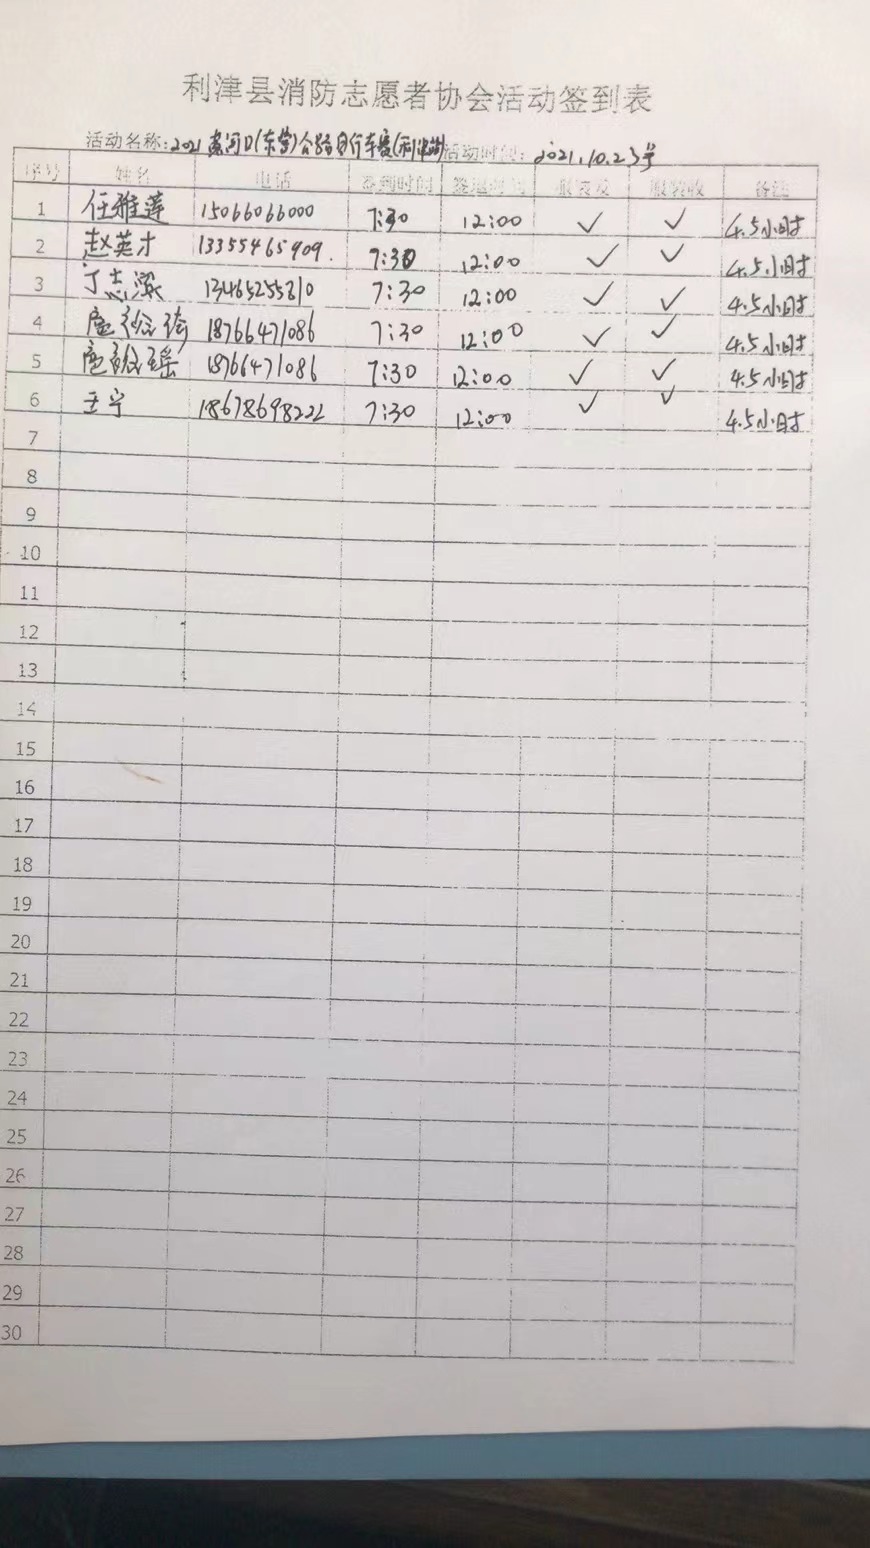 利津县消防志愿者协会活动签到表
活动名称:2021黄河口(东营)公路自行车赛(利津站)活动时间:2021.10.23号
序号 姓名 电话 签到时间 签退时间 服装发 服装收 备注
1 任雅莲 15066066000 7:30 12:00 ✓ ✓ 4.5小时
2 赵英才 13355465909. 7:30 12:00 ✓ ✓ 4.5小时
3 丁志 13465255810 7:30 12:00 ✓ ✓ 4.5小时
4 18766471086 7:30 12:00 ✓ ✓ 4.5小时
5 18766471086 7:30 12:00 ✓ ✓ 4.5小时
6 王宁 18678698222 7:30 12:00 ✓ ✓ 4.5小时
7
8
9
10
11
12
13
14
15
16
17
18
19
20
21
22
23
24
25
26
27
28
29
30